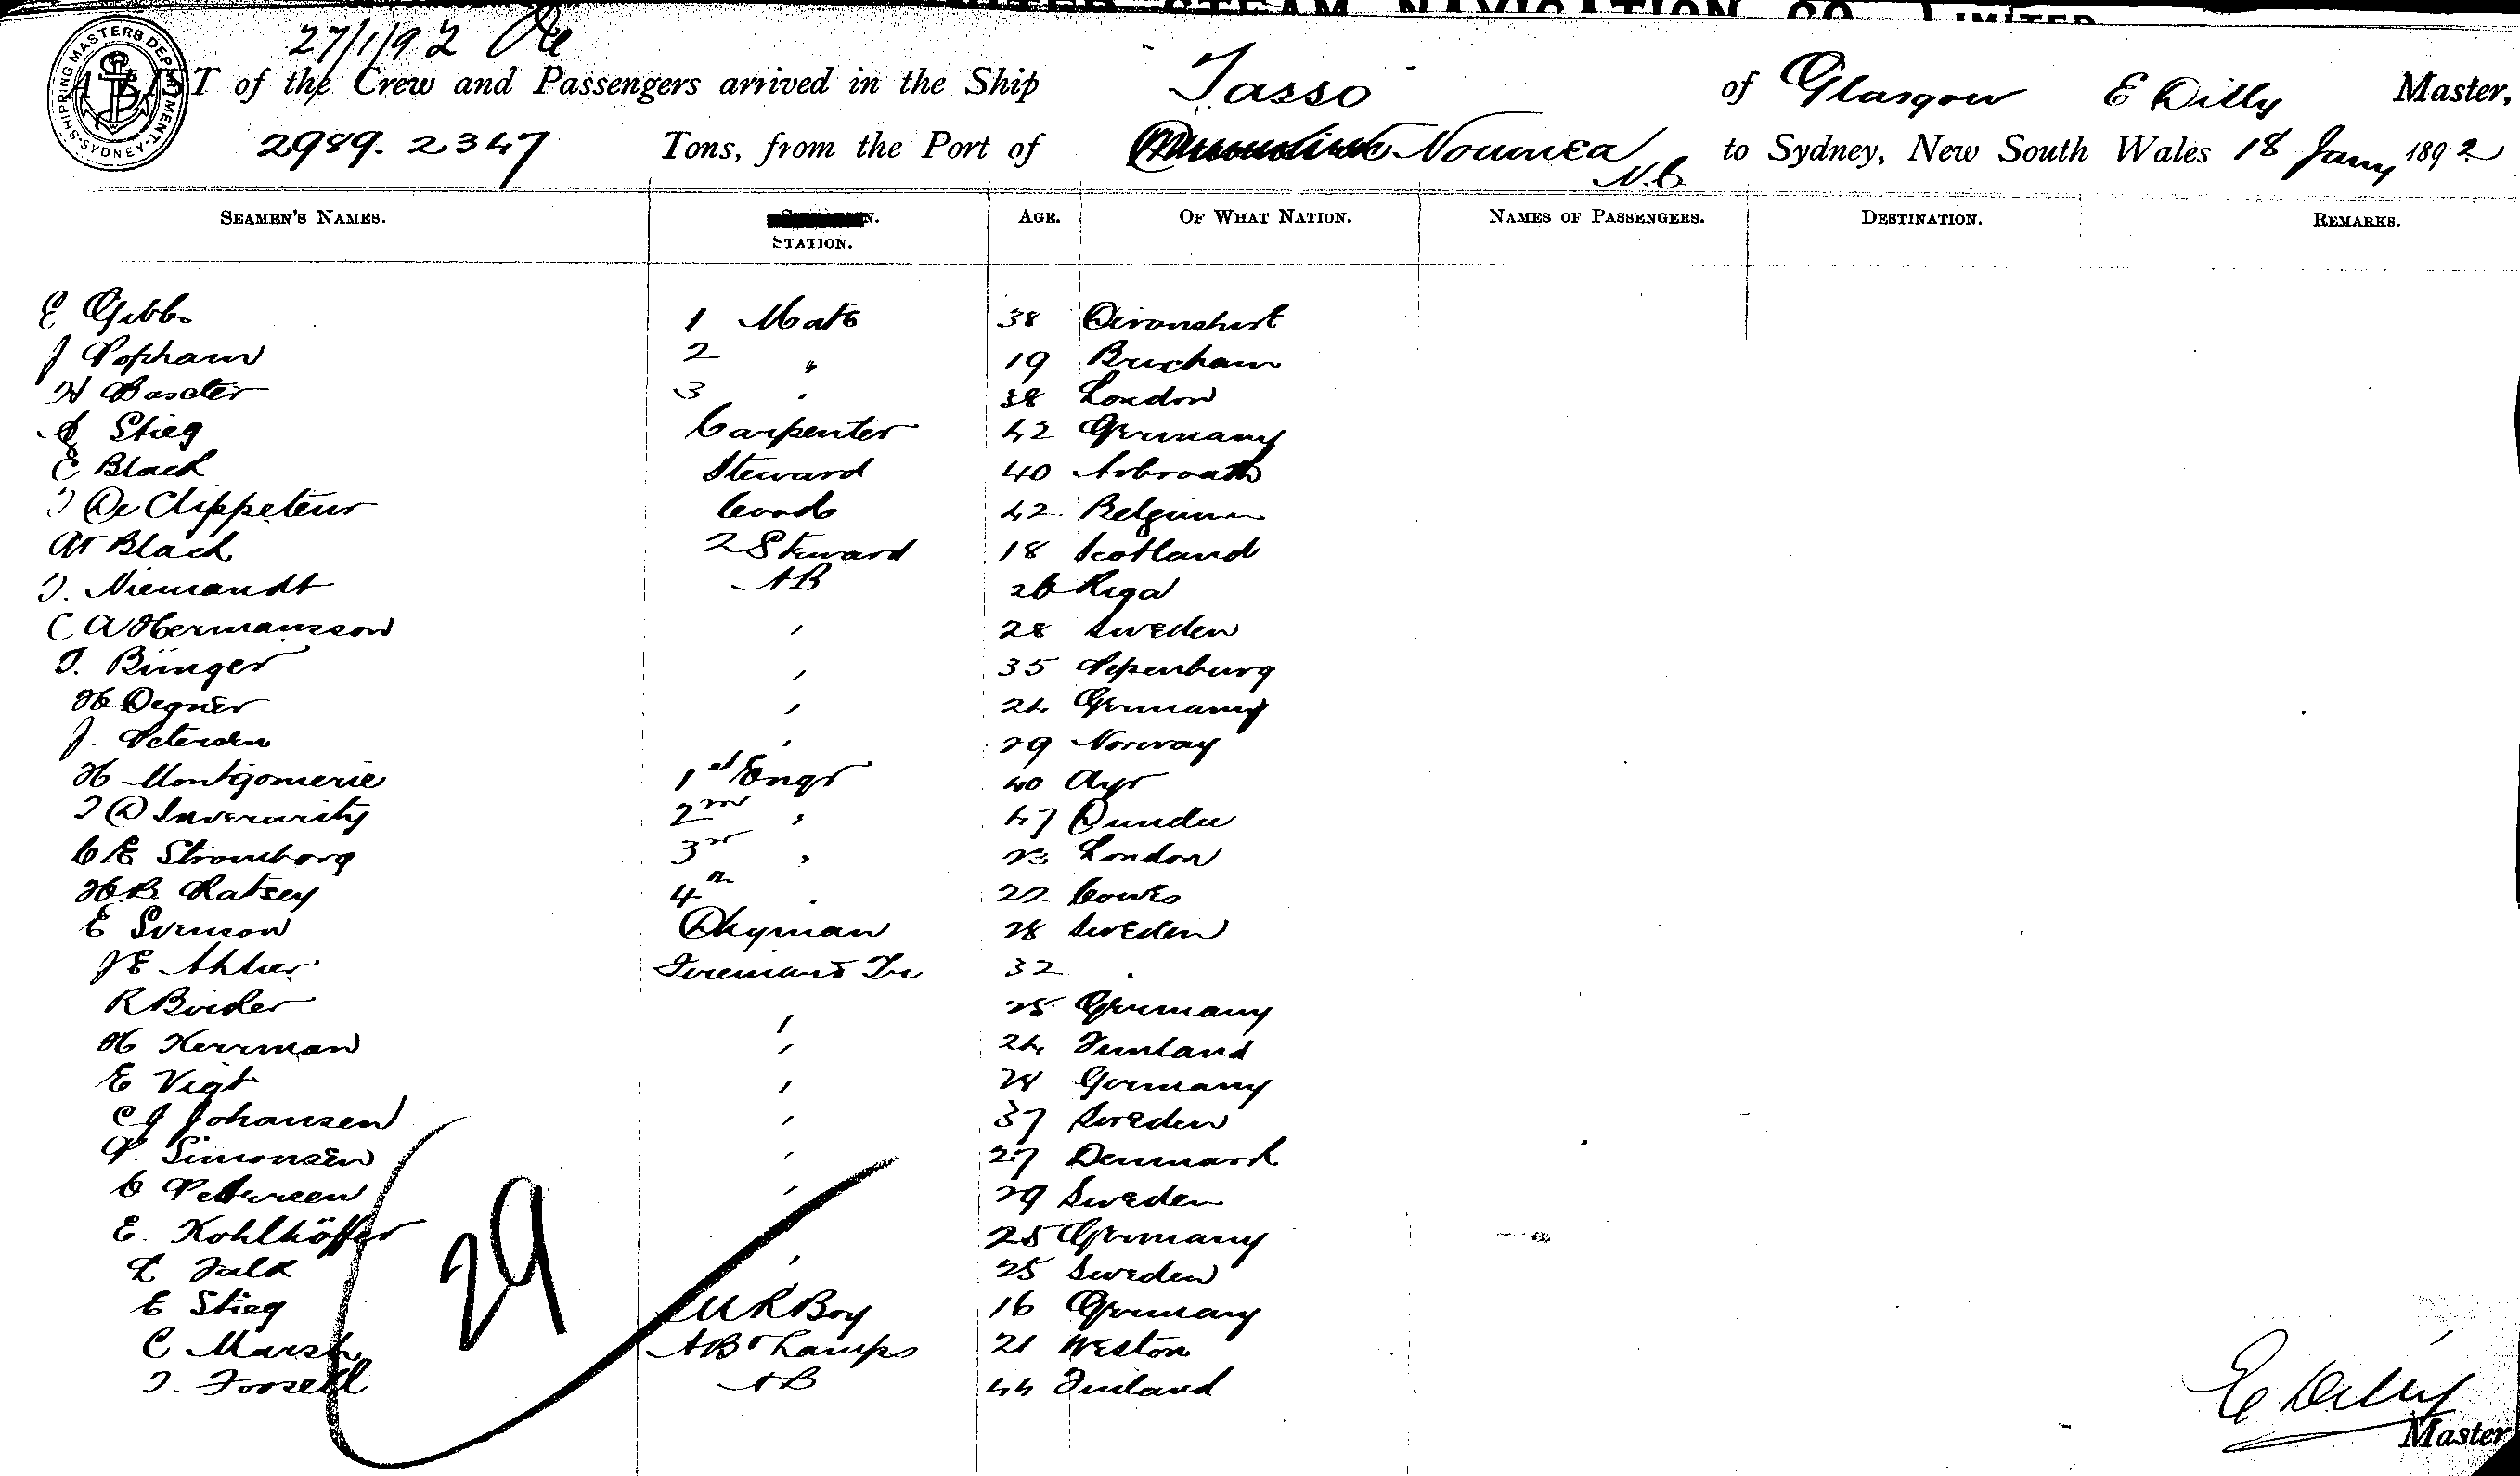 STEAM NAVIGATION CO. LIMITED
SHIPPING MASTERS DEPARTMENT SYDNEY
27/1/92
A LIST of the Crew and Passengers arrived in the Ship Tasso of Glasgow E Dilly Master,
2989. 2347 Tons, from the Port of Noumea N.C to Sydney, New South Wales 18 Jany 1892
SEAMEN'S NAMES. STATION. AGE. OF WHAT NATION. NAMES OF PASSENGERS. DESTINATION. REMARKS.
E Gibbs 1 Mate 38 Devonshire
J Popham 2 " 19 Brixham
H 3 " 38 London
Stieg Carpenter 42 Germany
C Black Steward 40 Arbroath
De Clippeteur Cook 42 Belgium
W Black 2 Steward 18 Scotland
Niemandt AB 26 Riga
C A Hermansson " 28 Sweden
Bünger " 35 Papenburg
H Degner " 24 Germany
J. Petersen " 29 Norway
H Montgomerie 1st Engr 40 Ayr
D Inverarity 2nd " 47 Dundee
C E Stromborg 3rd " 23 London
H B Ratsey 4th " 22 Cowes
E Svenson Dkyman 28 Sweden
J E Firemans Tr 32 "
R " 25 Germany
H Herrman " 24 Finland
E Vigt " 28 Germany
C J Johansen " 37 Sweden
P. Simonsen " 27 Denmark
C Petersen " 29 Sweden
E. Kohlhöffer " 25 Germany
Falk " 25 Sweden
E Stieg M R Boy 16 Germany
C Marsh AB & Lamps 21 Weston
Forsell AB 44 Finland
29
E Dilly
Master